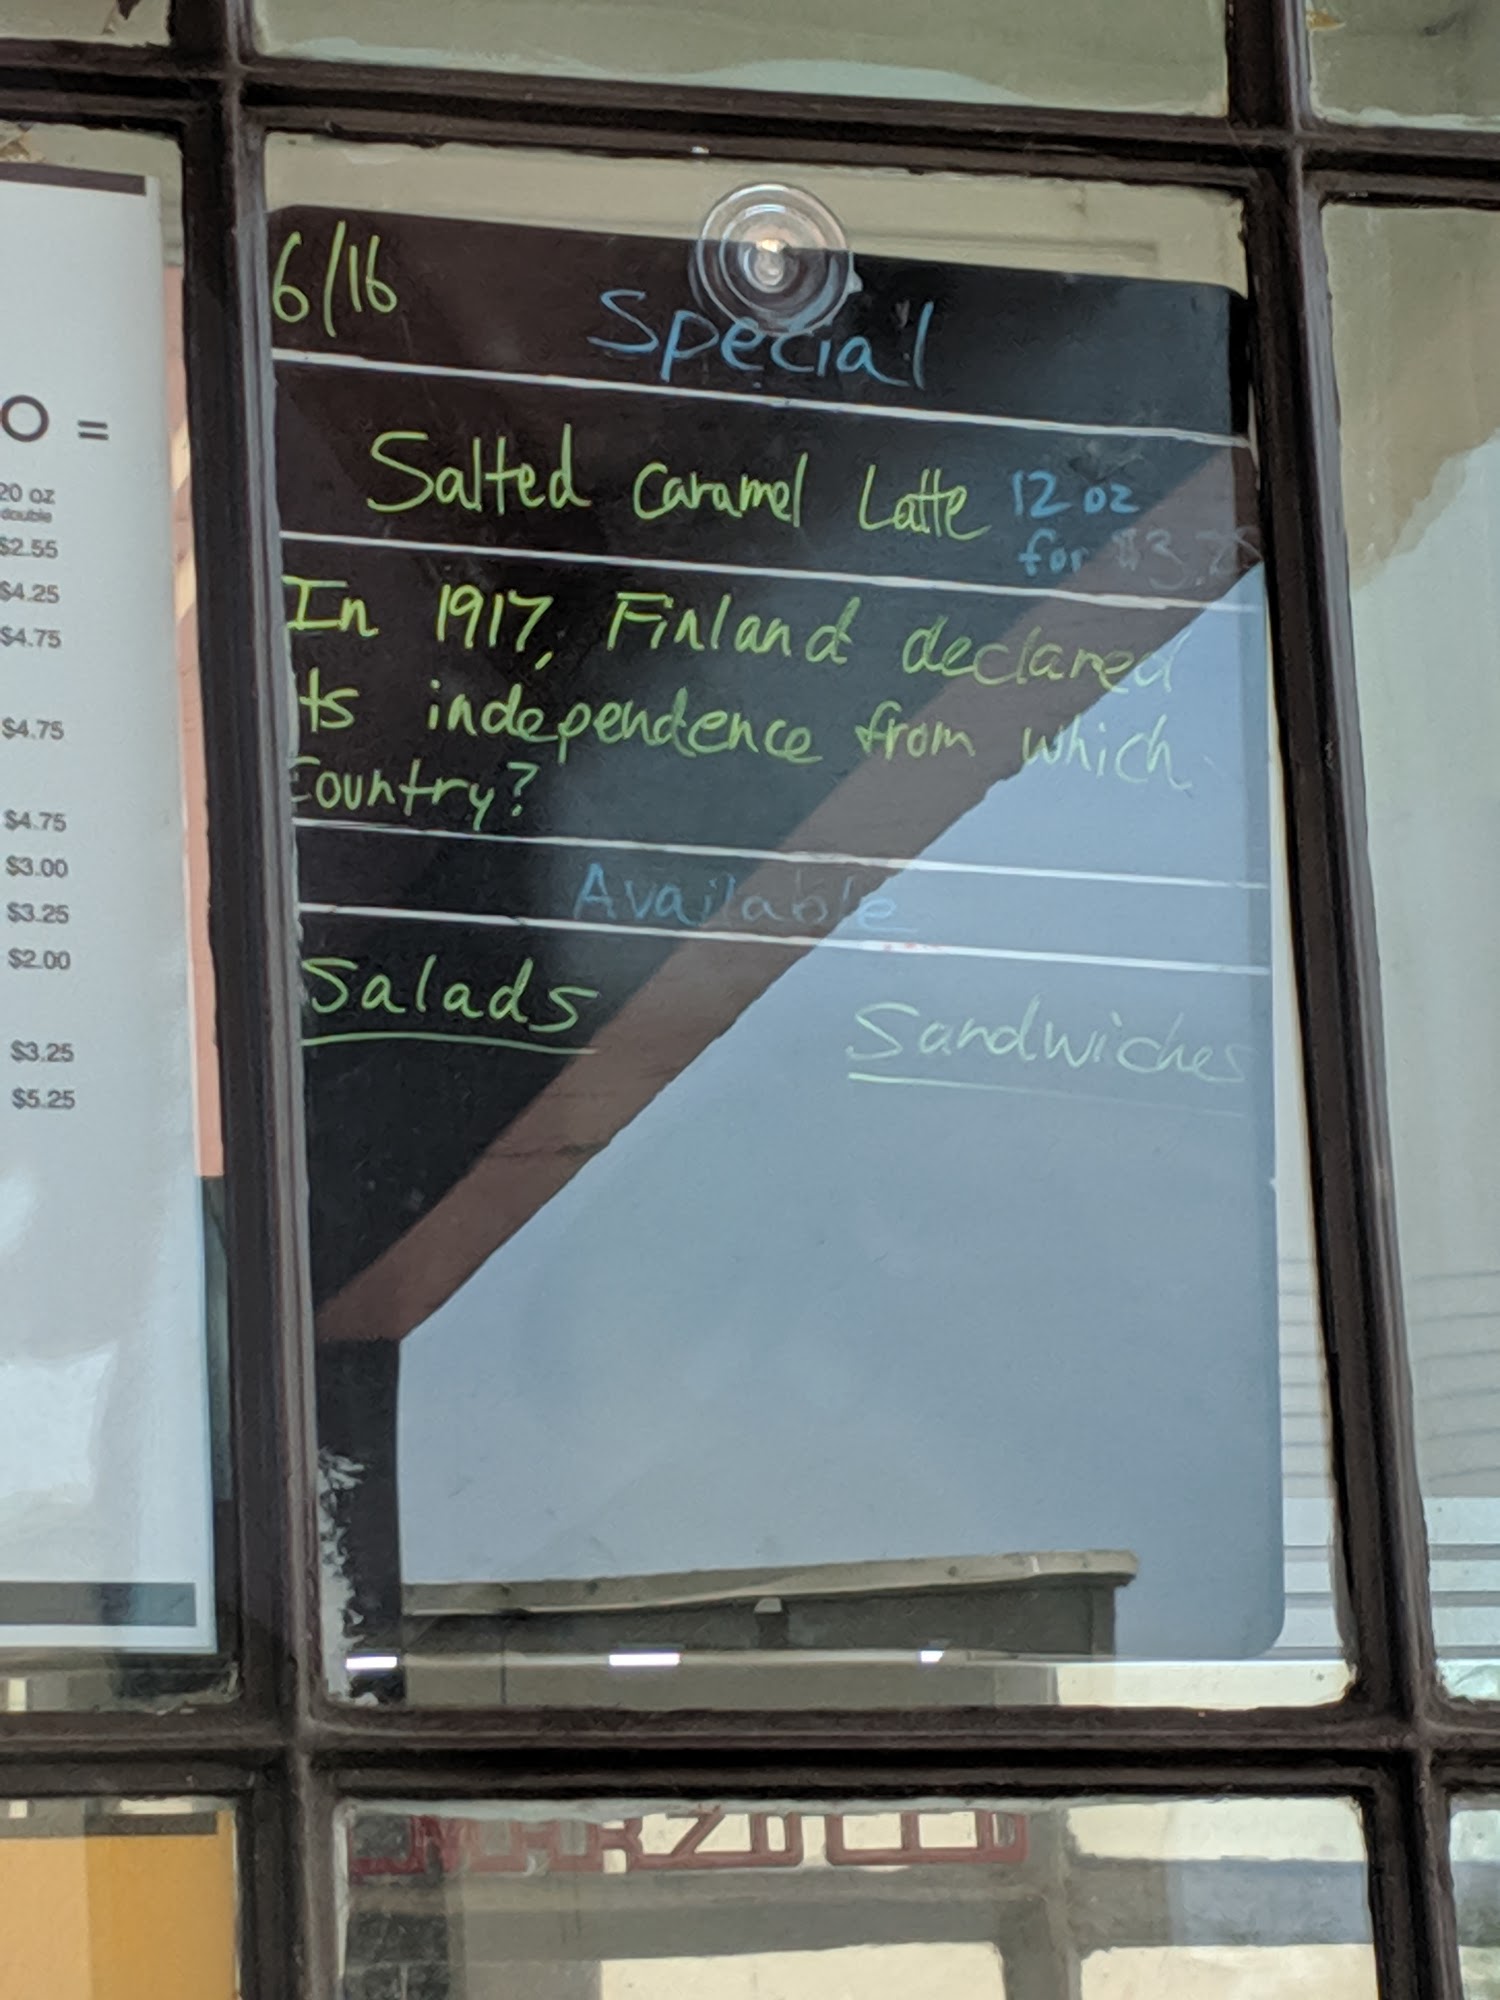 6/16
Special
Salted Caramel Latte 12 oz
for $3.75
In 1917, Finland declared
its independence from which
Country?
Available
Salads
Sandwiches
O =
20 oz
double
$2.55
$4.25
$4.75
$4.75
$4.75
$3.00
$3.25
$2.00
$3.25
$5.25